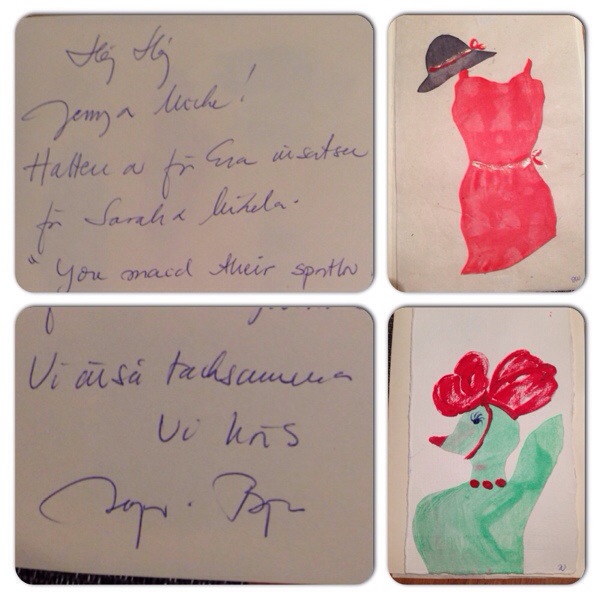 Hej Hej
Jenny o Micke!
Hatten a för Era insatser
för Sarah o Mikela.
"You maid their sportlov
Vi är så tacksamma
Vi hörs